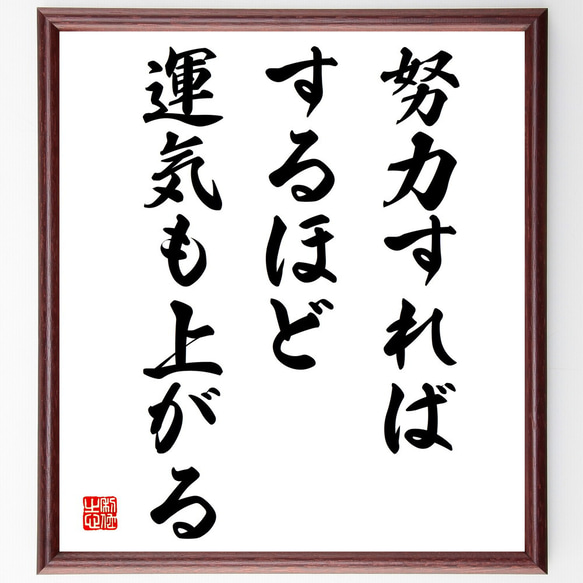 努力すれば
するほど
運気も上がる